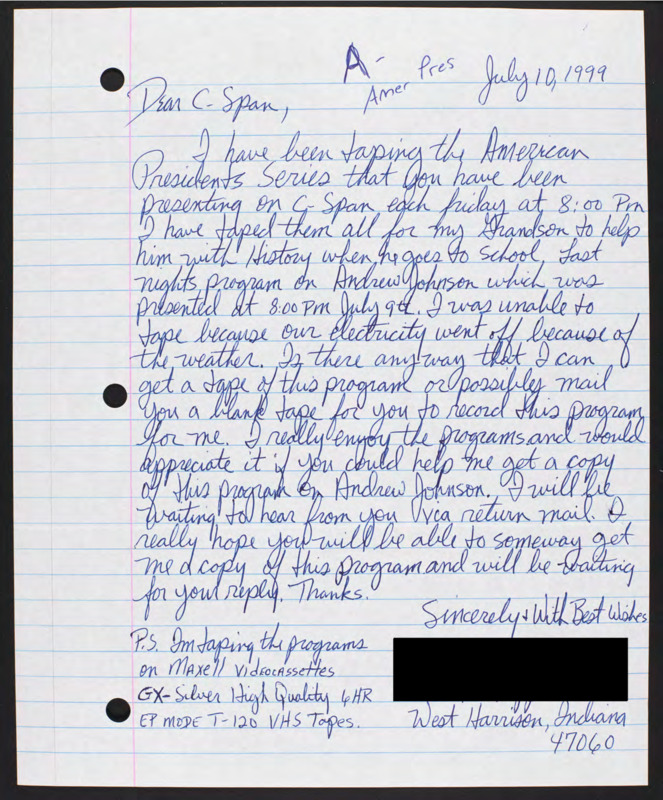 A-
Amer Pres
July 10, 1999
Dear C-Span,
I have been taping the American
Presidents Series that you have been
presenting on C-Span each friday at 8:00 Pm
I have taped them all for my Grandson to help
him with History when he goes to school. Last
nights program on Andrew Johnson which was
presented at 8:00 Pm July 9th. I was unable to
tape because our electricity went off because of
the weather. Is there anyway that I can
get a tape of this program or possibly mail
you a blank tape for you to record this program
for me. I really enjoy the programs and would
appreciate it if you could help me get a copy
of this program on Andrew Johnson. I will be
waiting to hear from you via return mail. I
really hope you will be able to someway get
me a copy of this program and will be waiting
for your reply. Thanks.
Sincerely & With Best Wishes
P.S. Im taping the programs
on Maxell Videocassettes
GX-Silver High Quality 6HR
EP MODE T-120 VHS Tapes.
West Harrison, Indiana
47060